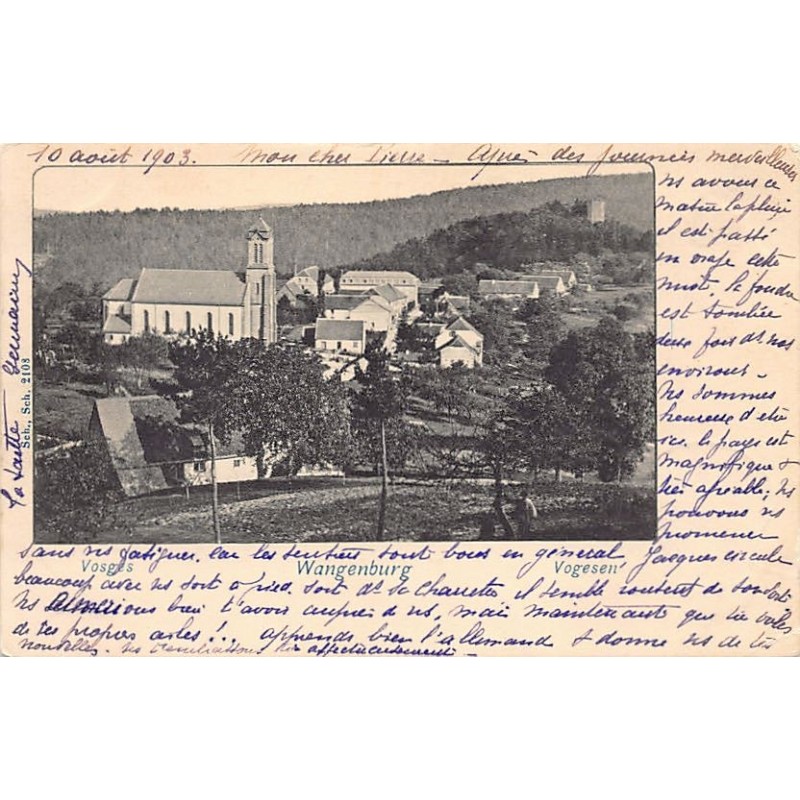 10 août 1903. Mon cher Pierre – Après des journées merveilleuses
ns avons ce
matin la pluie
il est passé
un orage cette
nuit, la foudre
est tombée
deux fois ds nos
environs –
Ns sommes
heureuse d'être
ici. le pays est
magnifique &
très agréable;
pouvons ns
promener
sans ns fatiguer, car les sentiers sont bons en général Jacques circule
beaucoup avec ns soit à pied, soit ds sa charrette, il semble content de son sort
Ns aimerions bien t'avoir auprès de ns, mais maintenant que tu voles
de tes propres ailes!.. apprends bien l'allemand & donne ns de tes
nouvelles. affectueusement –
Vosges
Wangenburg
Vogesen
Sch., Sch. 2108
Ta tante Germaine